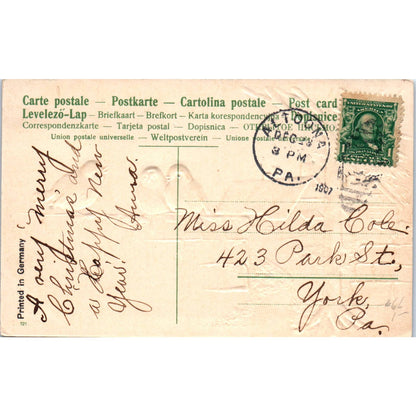 Carte postale – Postkarte – Cartolina postale – Post card
Levelező-Lap – Briefkaart – Brefkort – Karta korespondencyjna – Dopisnice
Correspondenzkarte – Tarjeta postal – Dopisnica –
Union postale universelle – Weltpostverein – Unione postale
ALTOONA
DEC 23
3 PM
PA.
1907
A very merry
Christmas and
a Happy New
Year! Anna.
Miss Hilda Cole.
423 Park St,
York,
Pa.
Printed in Germany